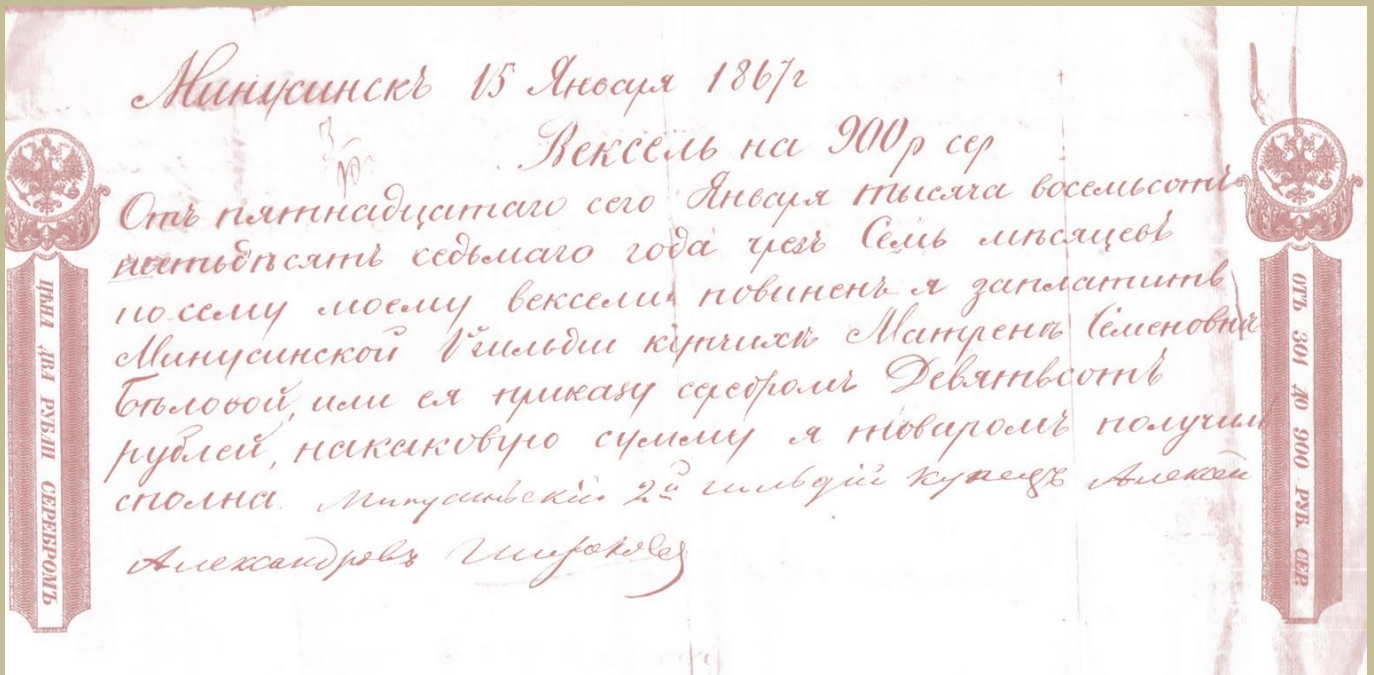 Минусинскъ 15 Января 1867 г
Вексель на 900 р сер
Отъ пятнадцатаго сего Января тысяча восемьсотъ
шестьдѣсятъ седьмаго года чрезъ Семь мѣсяцевъ
по сему моему векселю повиненъ я заплатить
Минусинской гильдіи купчихѣ Матренѣ Семеновнѣ
Бѣловой, или ея приказу серебромъ Девятьсотъ
рублей, накаковую сумму я товаромъ получилъ
сполна. Минусинскій 2й гильдій купецъ Алексей
Александровъ
ЦѢНА ДВА РУБЛИ СЕРЕБРОМЪ
ОТЪ 301 ДО 900 РУБ. СЕР.